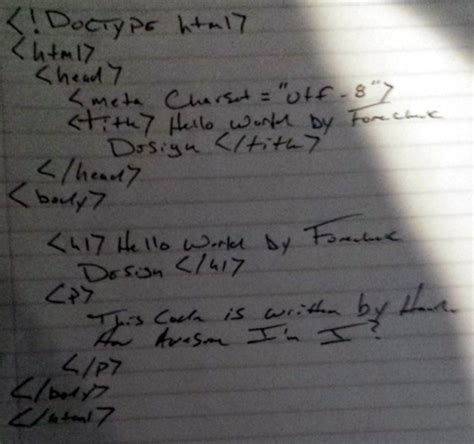 <!DOCTYPE html>
<html>
<head>
<meta Charset="utf-8">
<title> Hello World by
Design </title>
</head>
<body>
<h1> Hello World by
Design </h1>
<p>
This Code is written by Hand.
How Awesome I'm I?
</p>
</body>
</html>